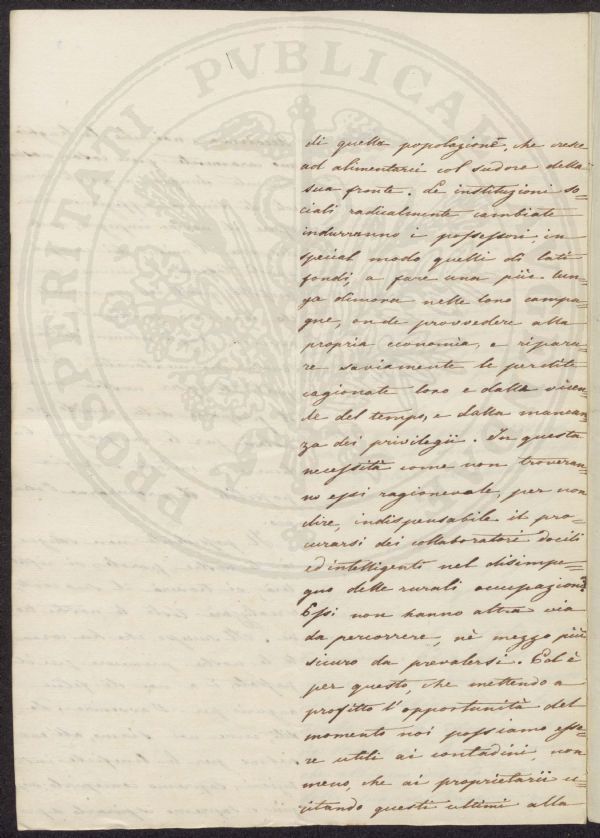 di quella popolazione, che cresce
ad alimentarci col sudore della
sua fronte. Le instituzioni so=
ciali radicalmente cambiate
indurranno i possessori, in
special modo quelli di lati
fondi, a fare una più lun=
ga dimora nelle loro campa=
gne, onde provvedere alla
propria economia, e ripara=
re saviamente le perdite
cagionate loro e dalle vicen=
de del tempo, e dalla mancan=
za dei privilegii. In questa
necessità come non troveran=
no essi ragionevole, per non
dire, indispensabile il pro=
curarsi dei collaboratori docili
ed intelligenti nel disimpe=
gno delle rurali occupazioni?
Essi non hanno altra via
da percorrere, nè mezzo più
sicuro da prevalersi. Ed è
per questo, che mettendo a
profitto l'opportunità del
momento noi possiamo esse=
re utili ai contadini, non
meno, che ai proprietarii ec=
citando questi ultimi alla
PROSPERITATI PVBLICAE